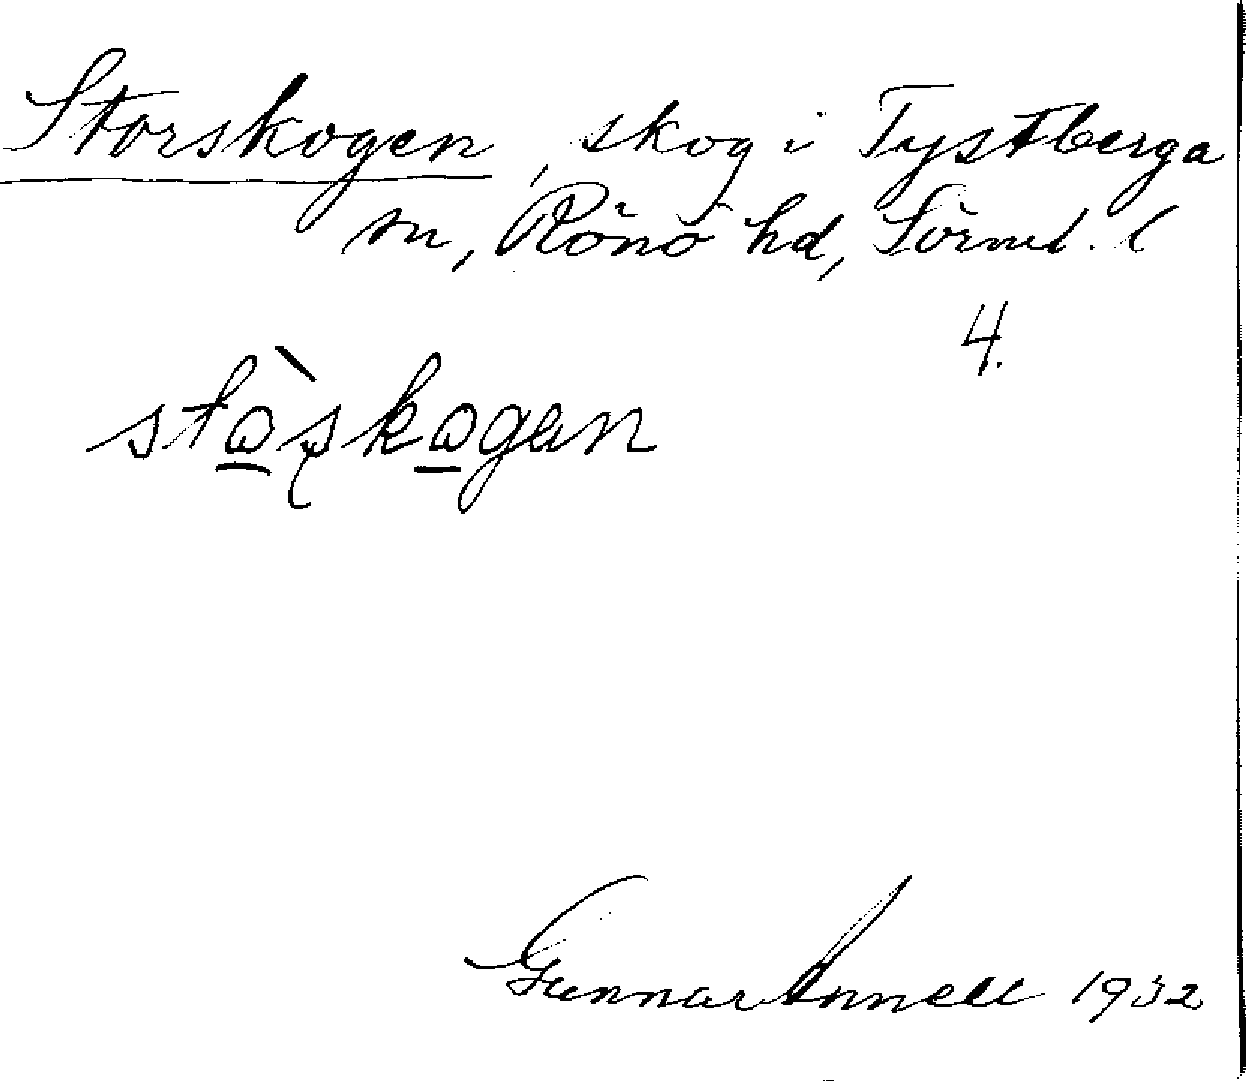 Storskogen, skog i Tystberga
sn, Rönö hd, Sörml. l
4.
Gunnar Annell 1932